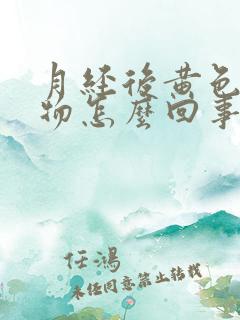 月经后黄色
物怎么回事
任鸿
未经同意禁止转载